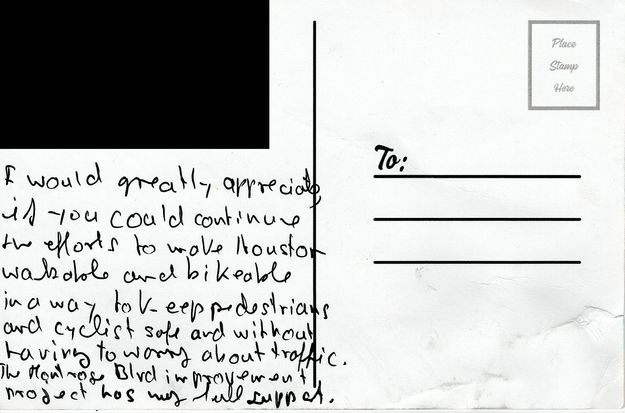 I would greatly appreciate
if you could continue
the efforts to make Houston
walkable and bikeable
in a way to keep pedestrians
and cyclist safe and without
having to worry about traffic.
The Montrose Blvd improvement
project has my full support.
Place
Stamp
Here
To: